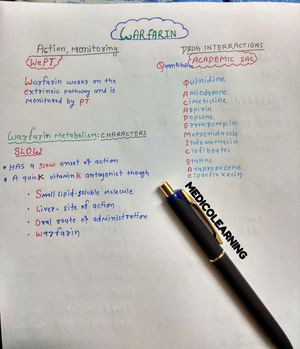 WARFARIN
Action, Monitoring
WePT
Warfarin works on the
extrinsic pathway and is
monitored by PT
Warfarin Metabolism: CHARACTERS
SLOW
HAS a slow onset of action
A quicK vitaminK antagonist though
Small lipid-soluble molecule
Liver - site of action
Oral route of administration
Warfarin
DRUG INTERRACTIONS
ACADEMIC SAC
Quinidine
Amiodarone
Cimetidine
Aspirin
Dapsone
Erythromycin
Metronidazole
Indomethacin
Clofibrates
Statins
Azapropazone
Ciprofloxacin
MEDICOLEARNING